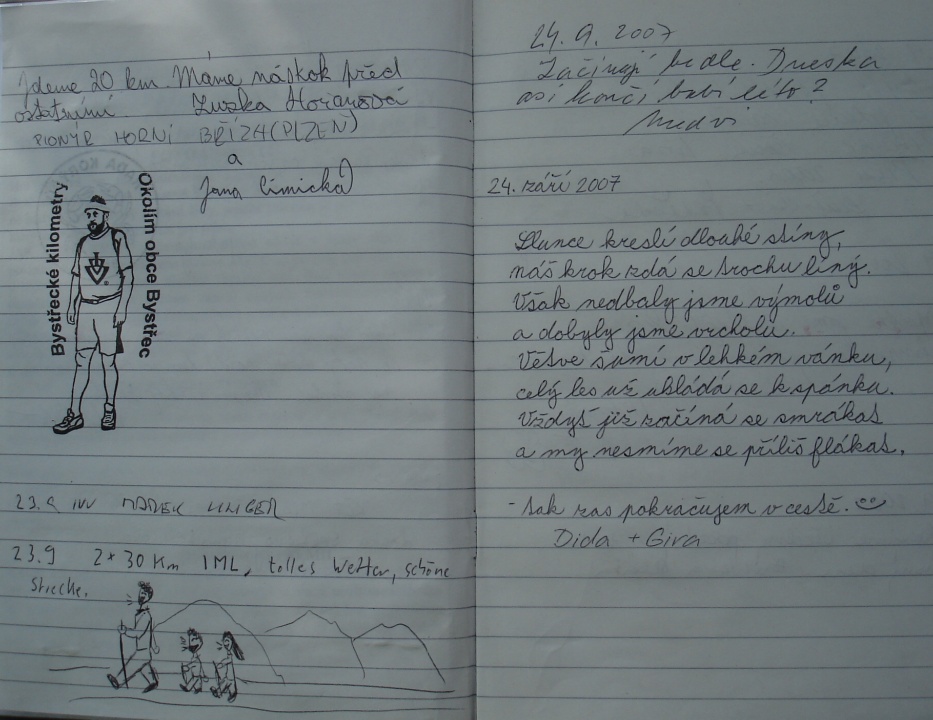 Jdeme 20 km. Máme náskok před
ostatními. Zuzka
PIONÝR HORNÍ BŘÍZA (PLZEŇ)
a
Jana
Bystřecké kilometry
Okolím obce Bystřec
23.9 IVV MAREK UNGER
23.9 2 + 30 Km IML, tolles Wetter, schöne
Strecke.
24. 9. 2007
Začínají bedle. Dneska
asi končí babí léto?
24. září 2007
Slunce kreslí dlouhé stíny,
náš krok zdá se trochu líný.
Však nedbaly jsme výmolů
a dobyly jsme vrcholů.
Větve šumí v lehkém vánku,
celý les už ukládá se k spánku.
Vždyť již začíná se smrákat
a my nesmíme se příliš flákat.
- tak zas pokračujem v cestě. ☺
Dida + Gira